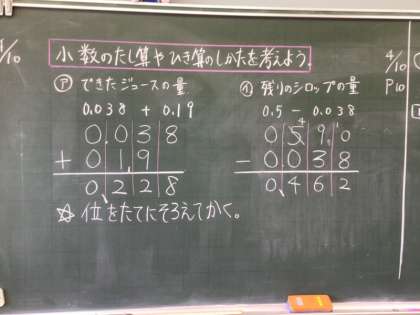 小数のたし算やひき算のしかたを考えよう。
㋐ できたジュースの量
0.038 + 0.19
0.038
+ 0.19
0.228
㋑ 残りのシロップの量
0.5 - 0.038
4
0.590
- 0.038
0.462
☆ 位をたてにそろえてかく。
4/10
P10
/10